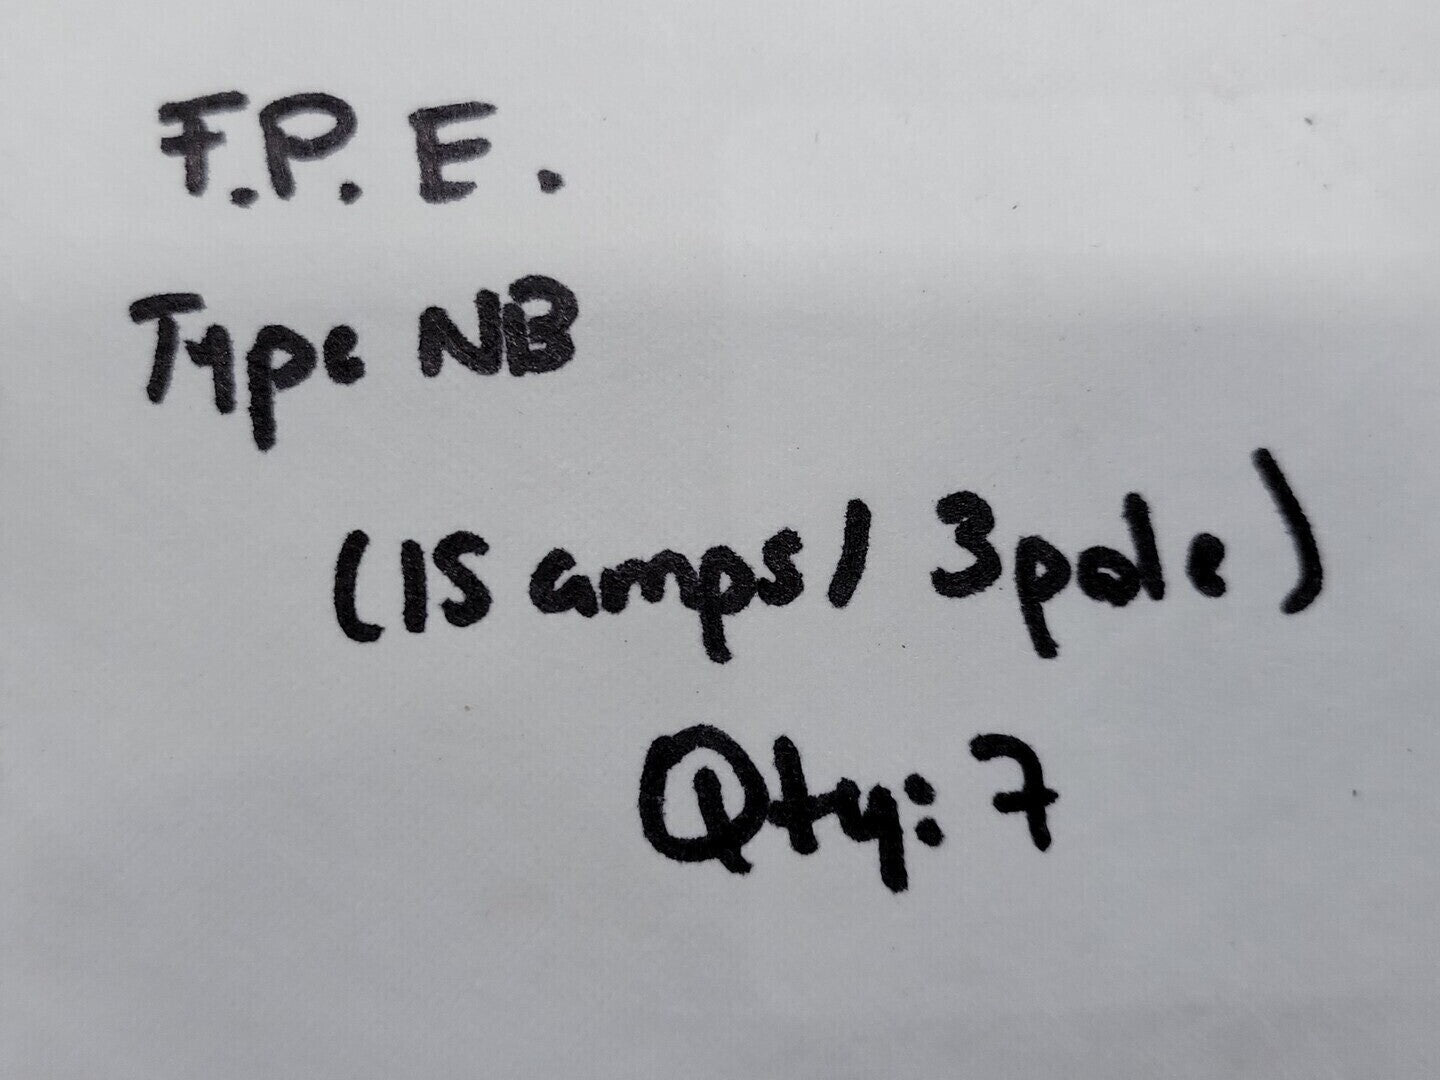 F.P.E.
Type NB
(15 amps/3pole)
Qty: 7